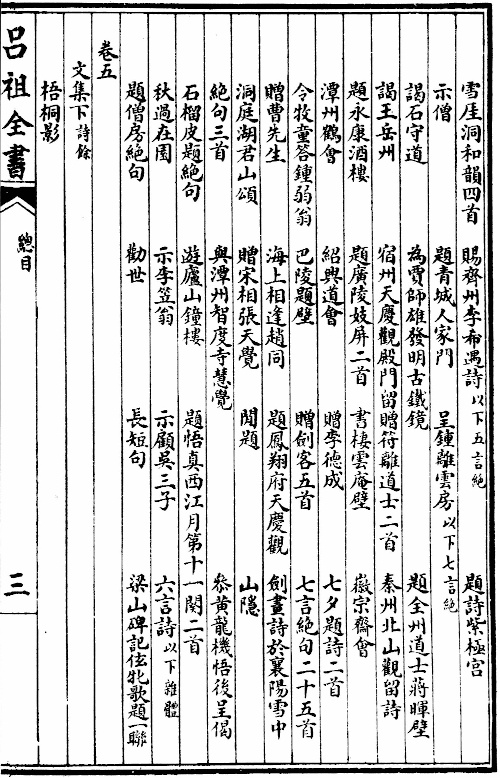 雪厓洞和韻四首 賜齊州李希遇詩以下五言絶 題詩紫極宮
示僧 題青城人家門 呈鍾離雲房以下七言絶
謁石守道 為賈師雄發明古鐵鏡 題全州道士蔣暉壁
謁王岳州 宿州天慶觀殿門留贈符離道士二首 秦州北山觀留詩
題永康酒樓 題廣陵妓屏二首 書棲雲庵壁 徽宗齋會
潭州鶴會 紹興道會 贈李德成 七夕題詩二首
令牧童答鍾弱翁 巴陵題壁 贈劍客五首 七言絶句二十五首
贈曹先生 海上相逢趙同 題鳳翔府天慶觀 劍畫詩於襄陽雪中
洞庭湖君山頌 贈宋相張天覺 閒題 山隱
絶句三首 與潭州智度寺慧覺 叅黃龍機悟後呈偈
石榴皮題絶句 遊廬山鐘樓 題悟真西江月第十一闋二首
秋過在園 示李笠翁 示顧吳三子 六言詩以下雜體
題僧房絶句 勸世 長短句 梁山碑記伭牝歌題一聯
卷五
文集下詩餘
梧桐影
呂祖全書
總目
三